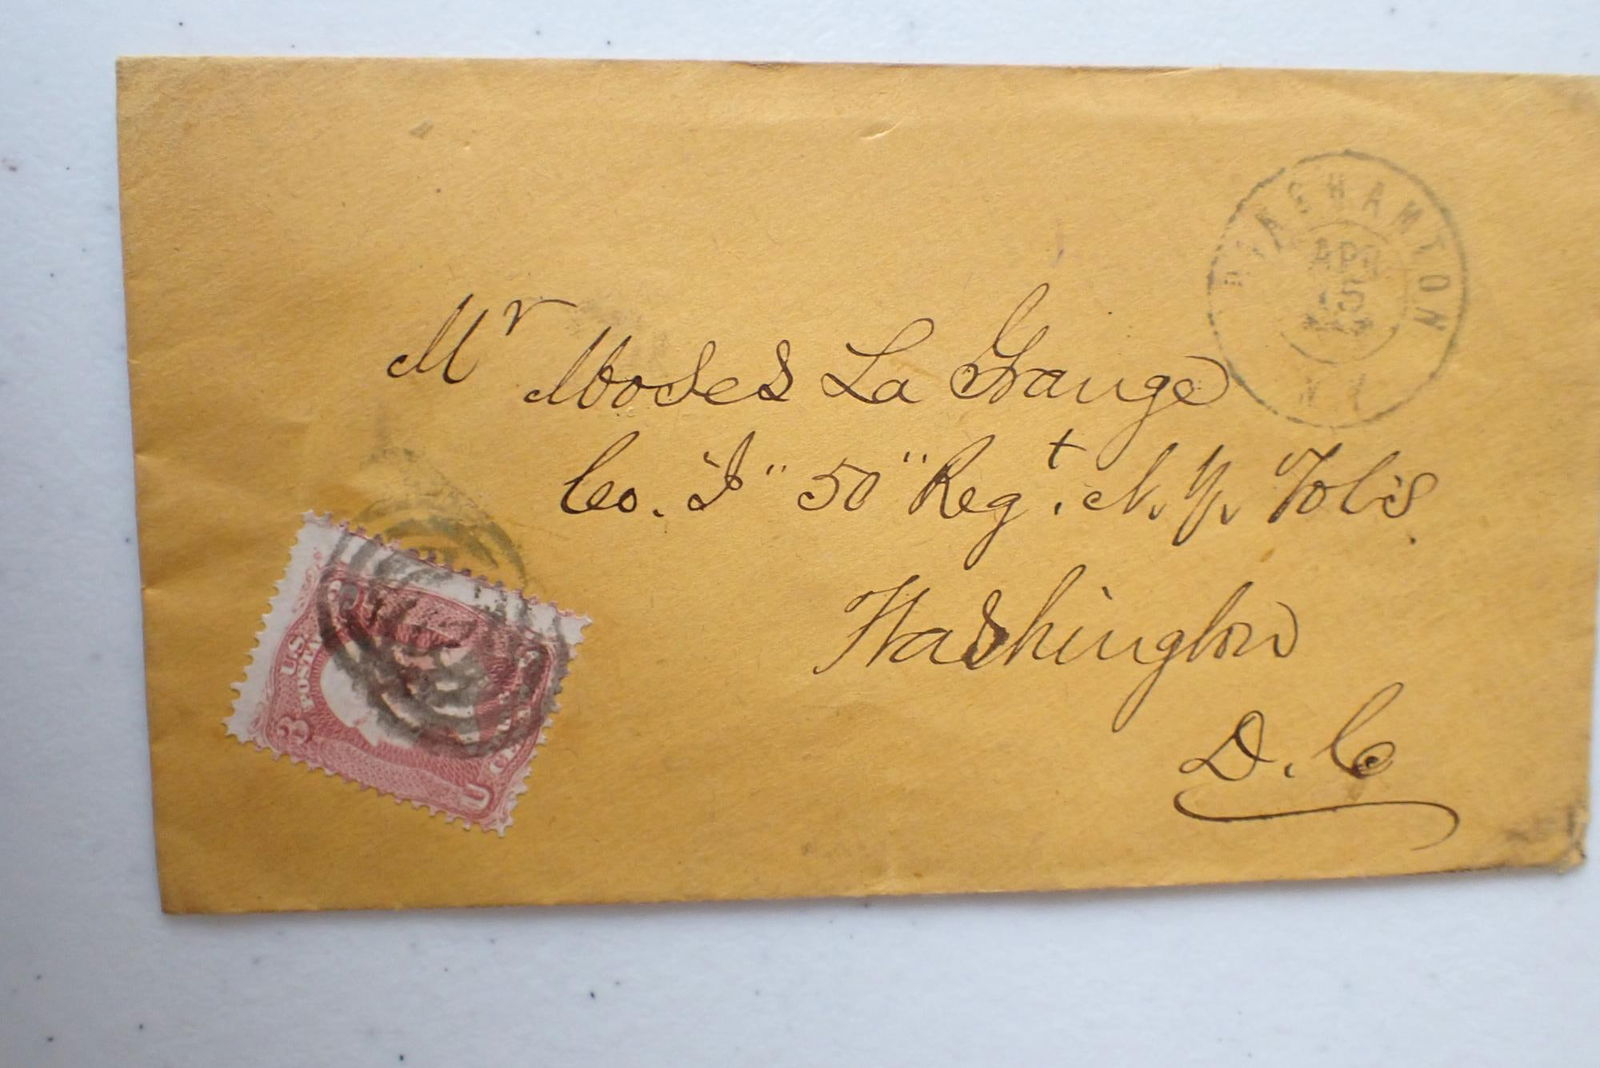 BINGHAMTON
APR
15
N.Y.
Mr Moses La Grange
Co. "I" 50" Regt. N. Y. Vols.
Washington
D. C
U.S.
POSTA
3
U